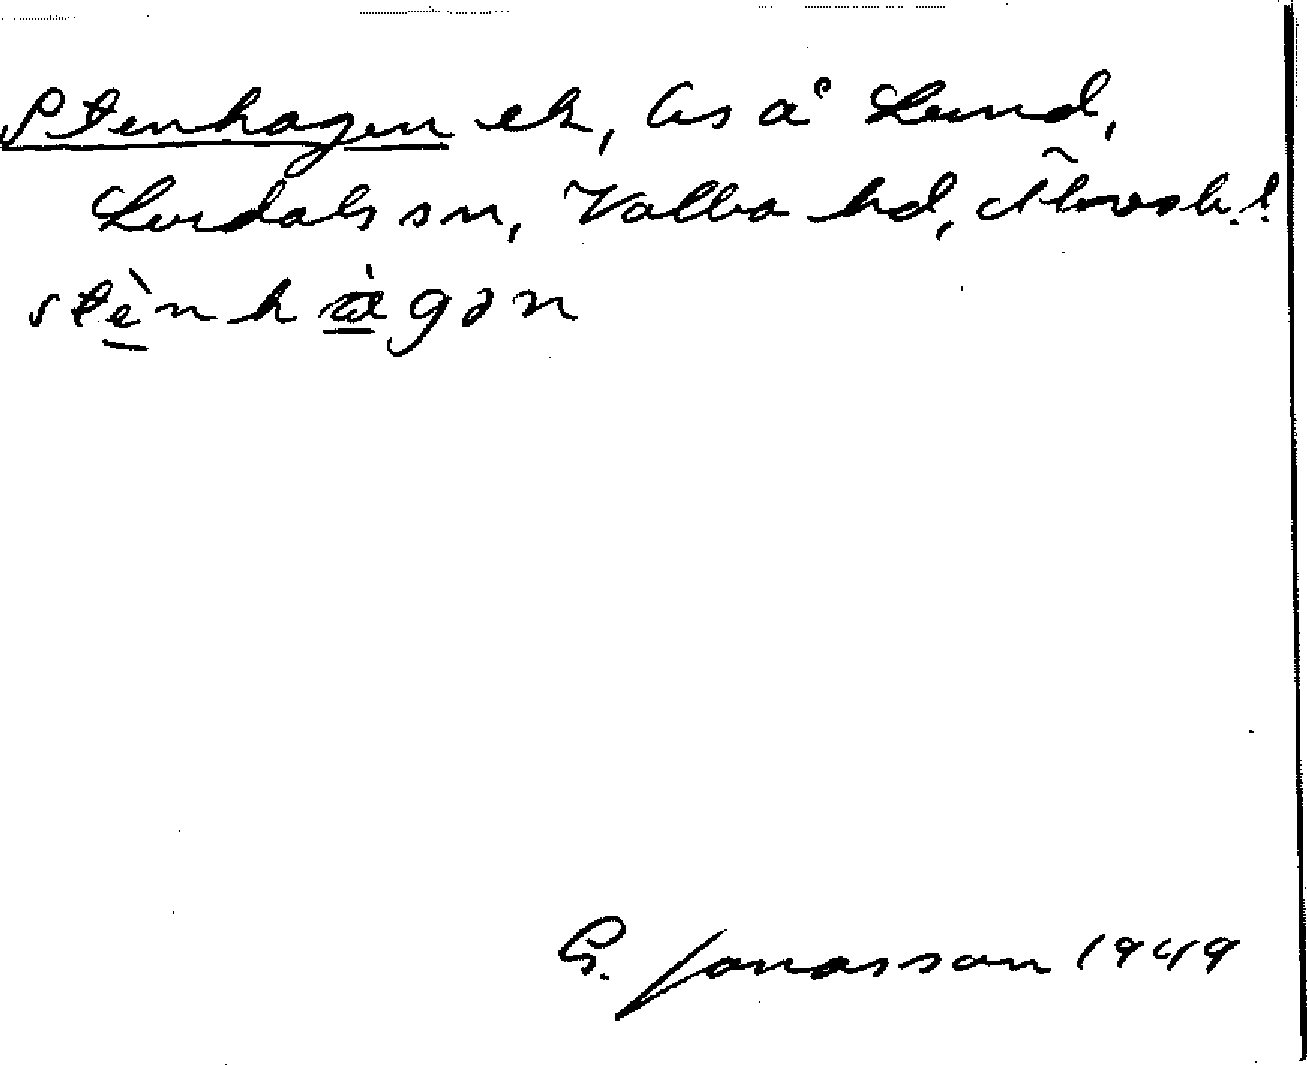 Stenhagen ek, lgs å Lund,
Lerdals sn, Valbo hd, Älvsb. l.
stènhàgən
G. Jonasson 1949